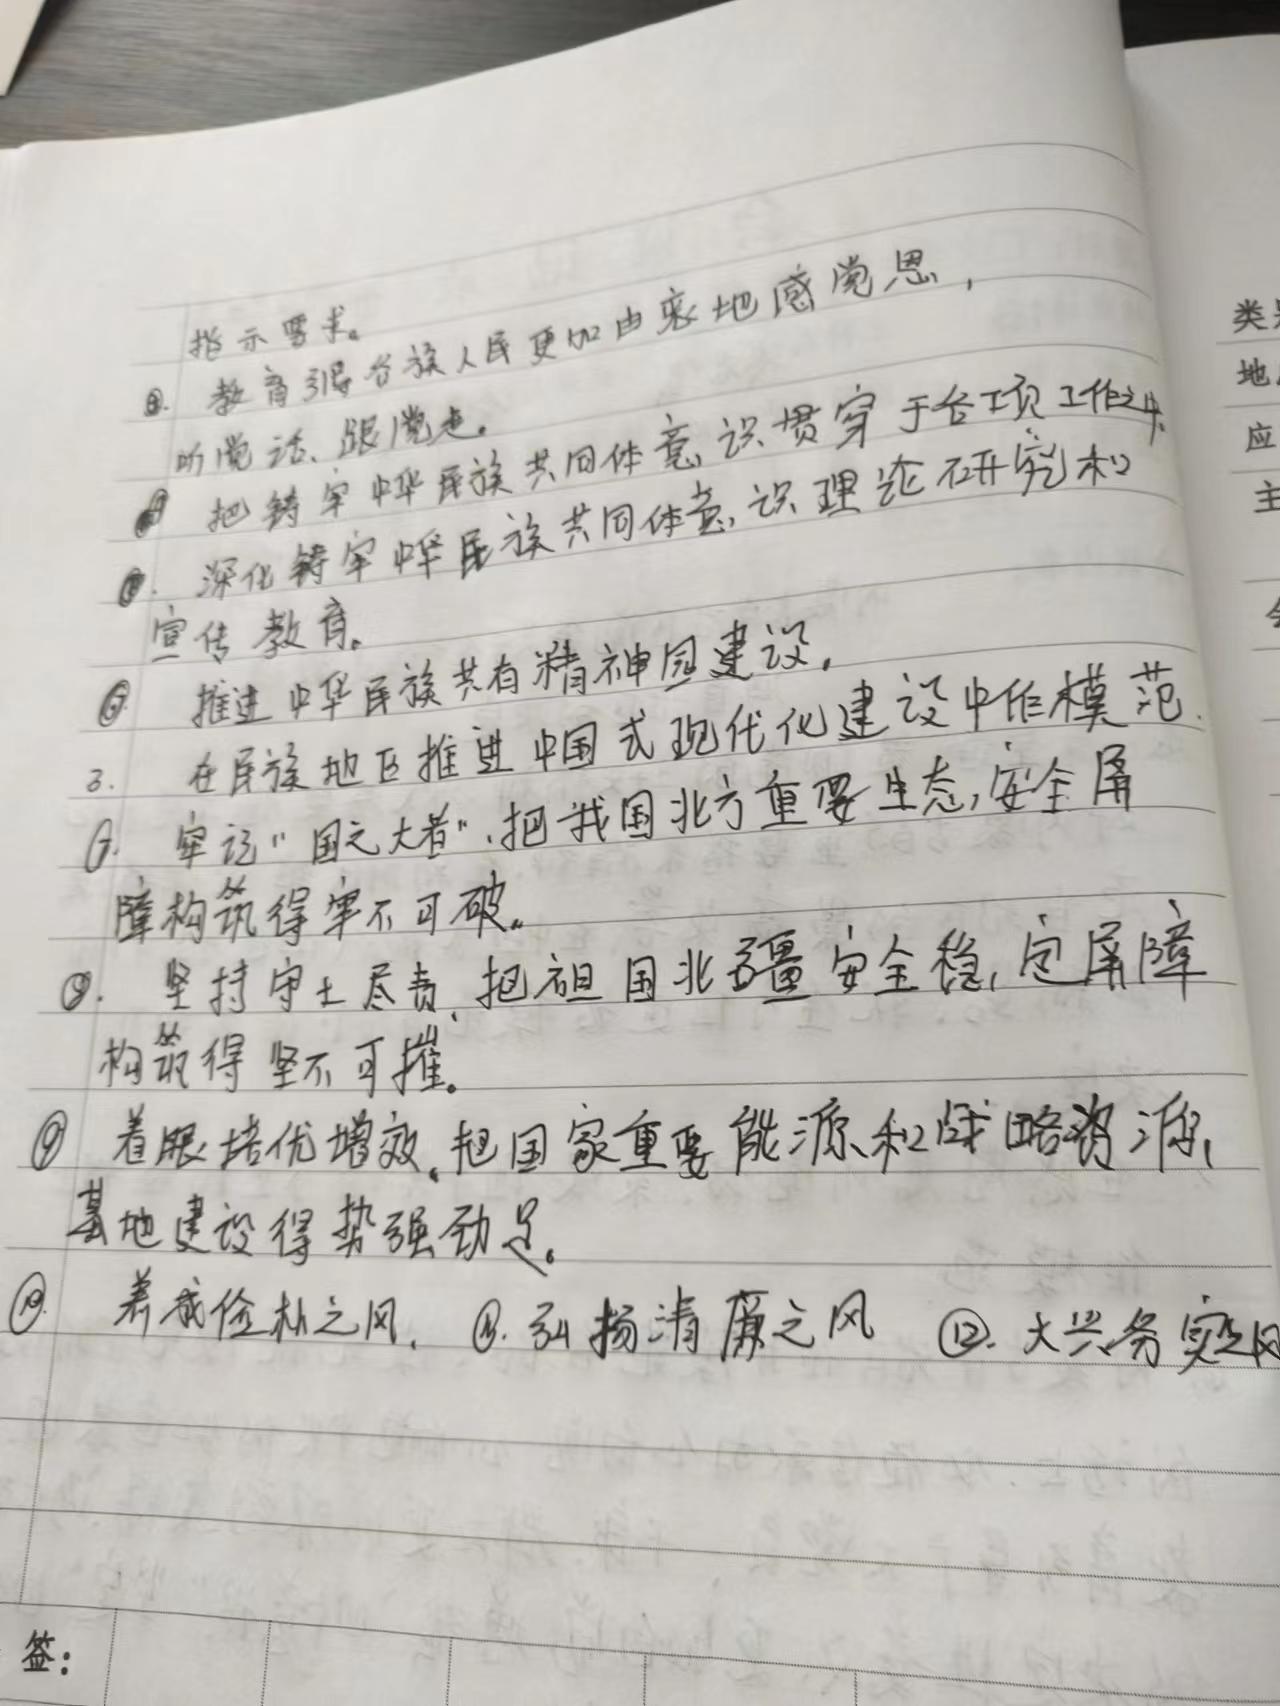 指示要求。
教育引导各族人民更加由衷地感党恩，
听党话、跟党走。
把铸牢中华民族共同体意识贯穿于各项工作之中.
深化铸牢中华民族共同体意识理论研究和
宣传教育。
⑥ 推进中华民族共有精神园建设.
3. 在民族地区推进中国式现代化建设中作模范.
⑦. 牢记"国之大者"、把我国北方重要生态安全屏
障构筑得牢不可破。
⑧. 坚持守土尽责、把祖国北疆安全稳定屏障
构筑得坚不可摧。
⑨ 着眼培优增效、把国家重要能源和战略资源
基地建设得势强劲足。
⑩. 养成俭朴之风. ⑪. 弘扬清廉之风 ⑫. 大兴务实之风
签:
类
地
应
主